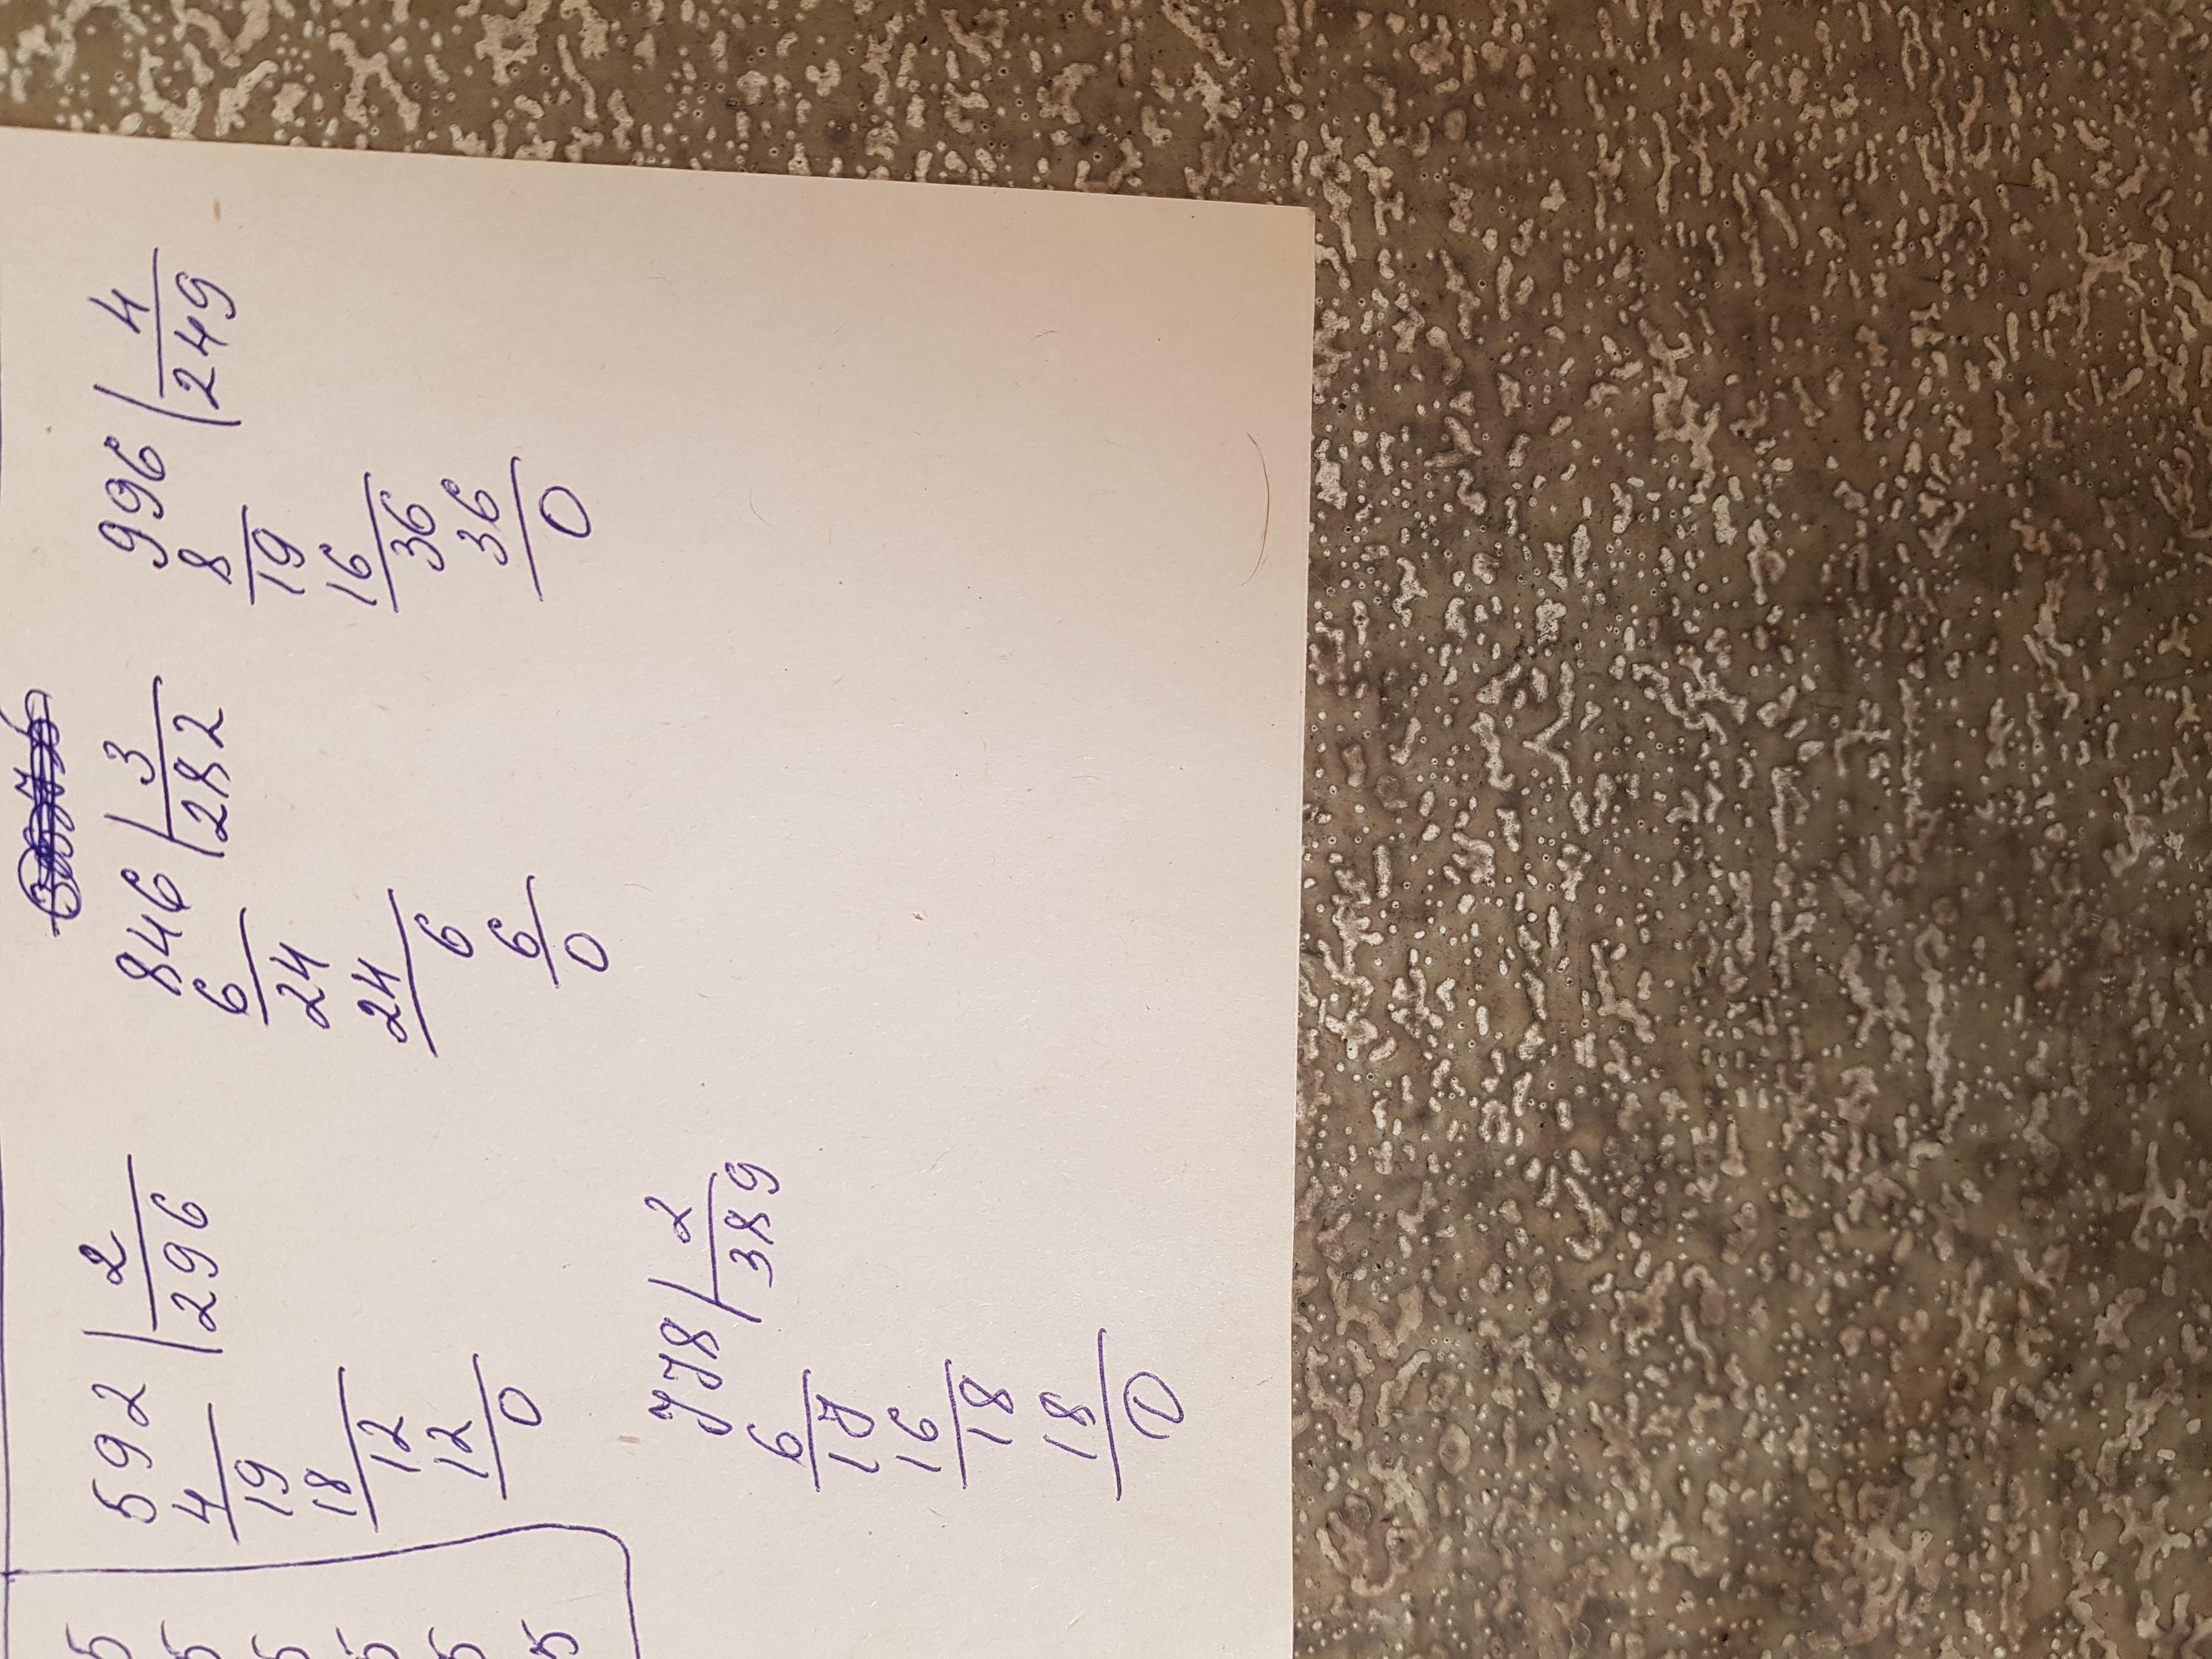 592 | 2
4 296
19
18
12
12
0
846 | 3
6 282
24
24
6
6
0
996 | 4
8 249
19
16
36
36
0
778 | 2
6 389
17
16
18
18
0
5
5
5
5
5
5